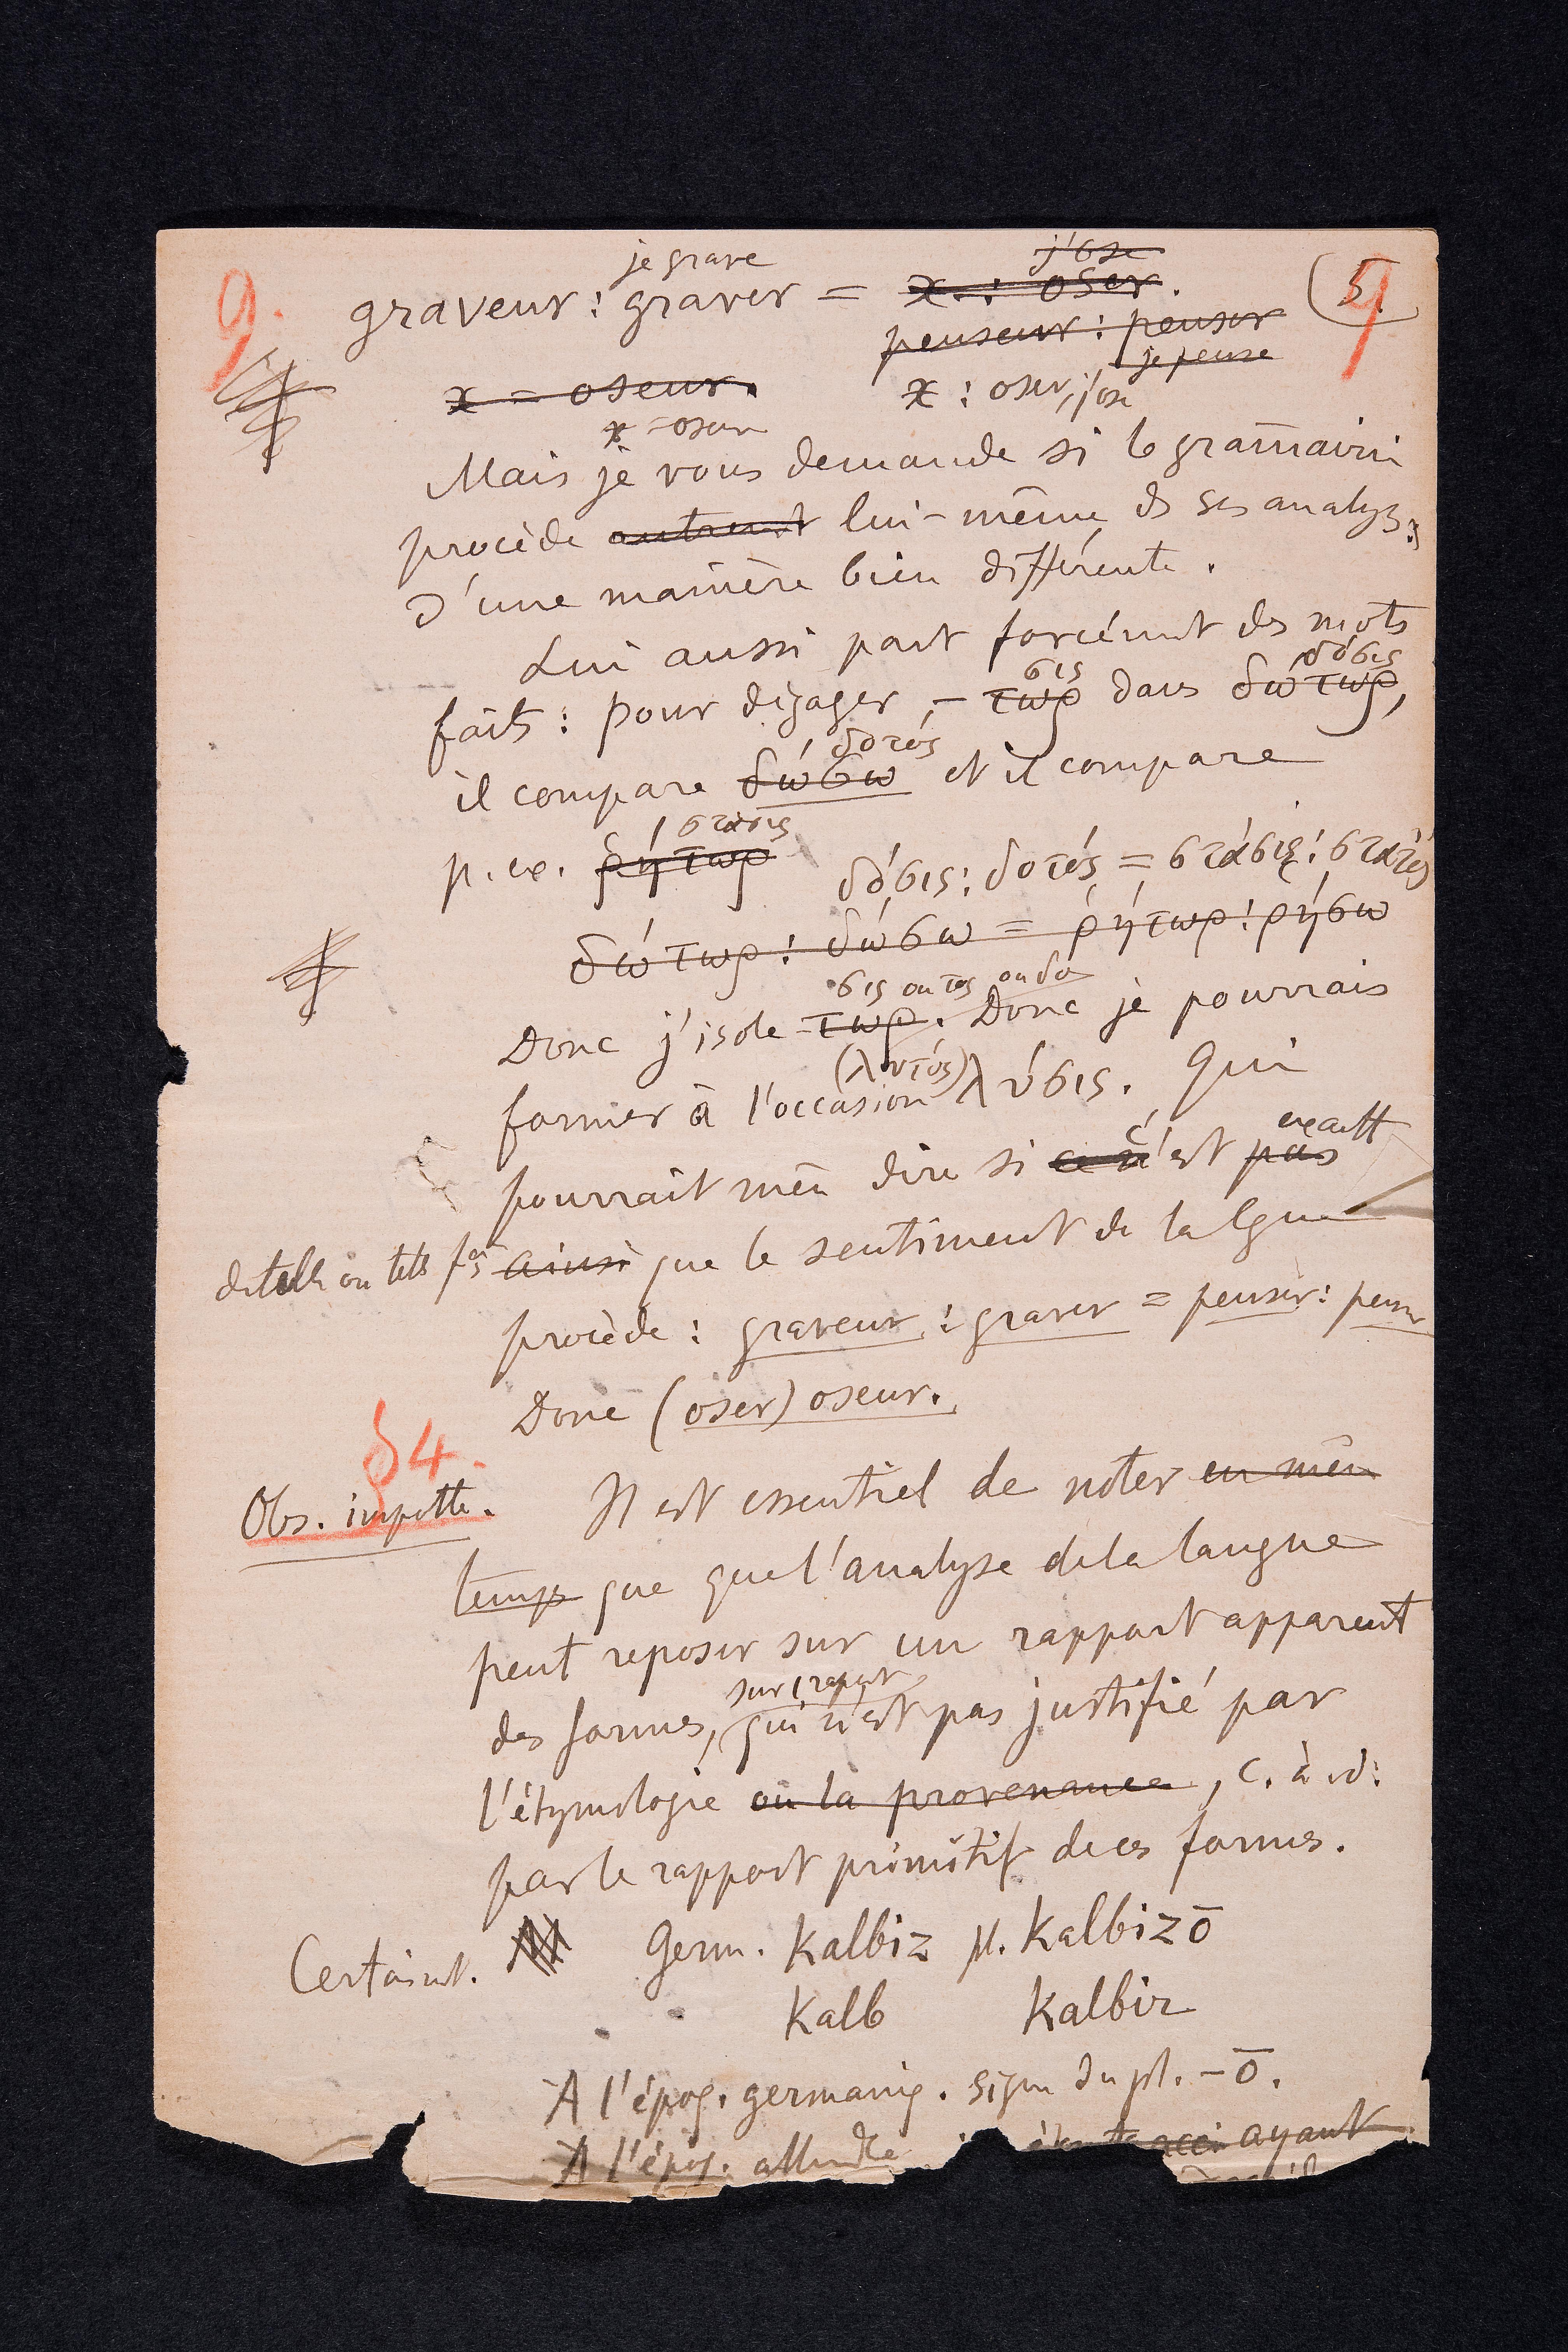 je grave j'ose
9. graveur : graver = x : oser. 5. 9
penseur : penser
je pense
x = oseur. x : oser, j'ose
x = oseur
Mais je vous demande si le gram̄airien
procède autremt lui-même ds ses analyses
d'une manière bien différente.
Lui aussi part forcémnt des mots
σις δόσις
faits : pour dégager – τωρ dans δώτωρ,
δοτός
il compare δώσω et il compare
στάσις
p. ex. ῥήτωρ δόσις : δοτός = στάσις : στατός
δώτωρ : δώσω = ῥήτωρ : ῥήσω
σις ou τος ou δο
Donc j'isole τωρ. Donc je pourrais
former à l'occasion (λυτός) λύσις. Qui
exactt
pourrait mêm dire si ce n'est pas
c'
de telle ou telle fçn ainsi que le sentiment de la lgue
procède : graveur : graver = penser : penser
Donc (oser) oseur.
§ 4.
Obs. impttte. Il est essentiel de noter en mêm
temps que que l'analyse de la langue
peut reposer sur un rapport apparent
sur 1 rapport
des formes, qui n'est pas justifié par
l'étymologie ou la provenance, c. à d.
par le rapport primitif de ces formes.
Certainmt. Germ. kalbiz pl. kalbizō
kalb kalbir
A l'époq. germaniq. signe du pl. – ō.
A l'époq. allmdde ayant